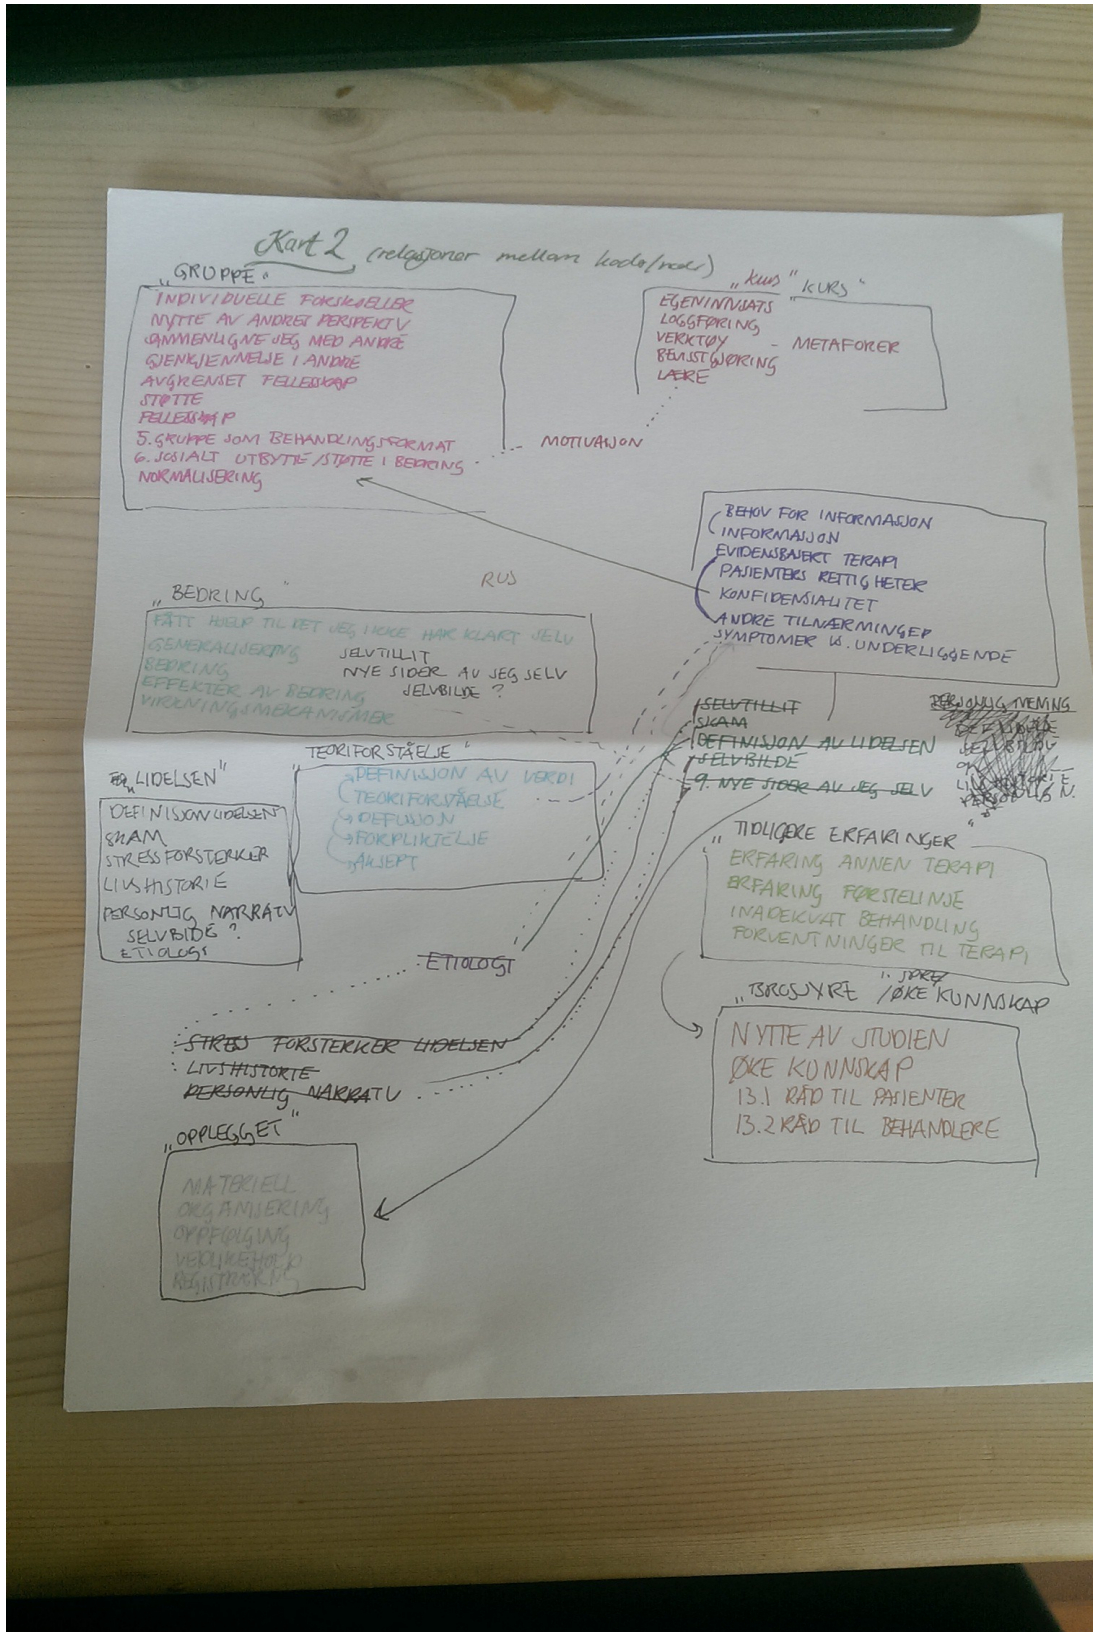 Kart 2 (relasjoner mellom koder/noder)
"GRUPPE"
INDIVIDUELLE FORSKJELLER
NYTTE AV ANDRES PERSPEKTIV
SAMMENLIGNE SEG MED ANDRE
GJENKJENNELSE I ANDRE
AVGRENSET FELLESSKAP
STØTTE
FELLESSKAP
5. GRUPPE SOM BEHANDLINGSFORMAT
6. SOSIALT UTBYTTE/STØTTE I BEDRING
NORMALISERING
"Kurs" "KURS"
EGENINNSATS
LOGGFØRING
VERKTØY - METAFORER
BEVISSTGJØRING
LÆRE
MOTIVASJON
BEHOV FOR INFORMASJON
INFORMASJON
EVIDENSBASERT TERAPI
PASIENTERS RETTIGHETER
KONFIDENSIALITET
ANDRE TILNÆRMINGER
SYMPTOMER VS. UNDERLIGGENDE
RUS
"BEDRING"
FÅTT HJELP TIL DET JEG IKKE HAR KLART SELV
GENERALISERING
BEDRING
EFFEKTER AV BEDRING
VIRKNINGSMEKANISMER
SELVTILLIT
NYE SIDER AV SEG SELV
SELVBILDE ?
SELVTILLIT
SKAM
DEFINISJON AV LIDELSEN
SELVBILDE
9. NYE SIDER AV SEG SELV
PERSONLIG MENING
SELVBILDE
TEORIFORSTÅELSE"
DEFINISJON AV VERDI
TEORIFORSTÅELSE
DEFUSJON
FORPLIKTELSE
AKSEPT
LIDELSEN"
DEFINISJON LIDELSEN
SKAM
STRESS FORSTERKER
LIVSHISTORIE
PERSONLIG NARRATIV
SELVBIDE ?
ETIOLOGI
"TIDLIGERE ERFARINGER"
ERFARING ANNEN TERAPI
ERFARING FØRSTELINJE
INADEKVAT BEHANDLING
FORVENTNINGER TIL TERAPI
ETIOLOGI
STRESS FORSTERKER LIDELSEN
LIVSHISTORIE
PERSONLIG NARRATIV
"BROSJYRE /ØKE KUNNSKAP
NYTTE AV STUDIEN
ØKE KUNNSKAP
13.1 RÅD TIL PASIENTER
13.2 RÅD TIL BEHANDLERE
"OPPLEGGET"
MATERIELL
ORGANISERING
OPPFØLGING
VEDLIKEHOLD
REGISTRERING